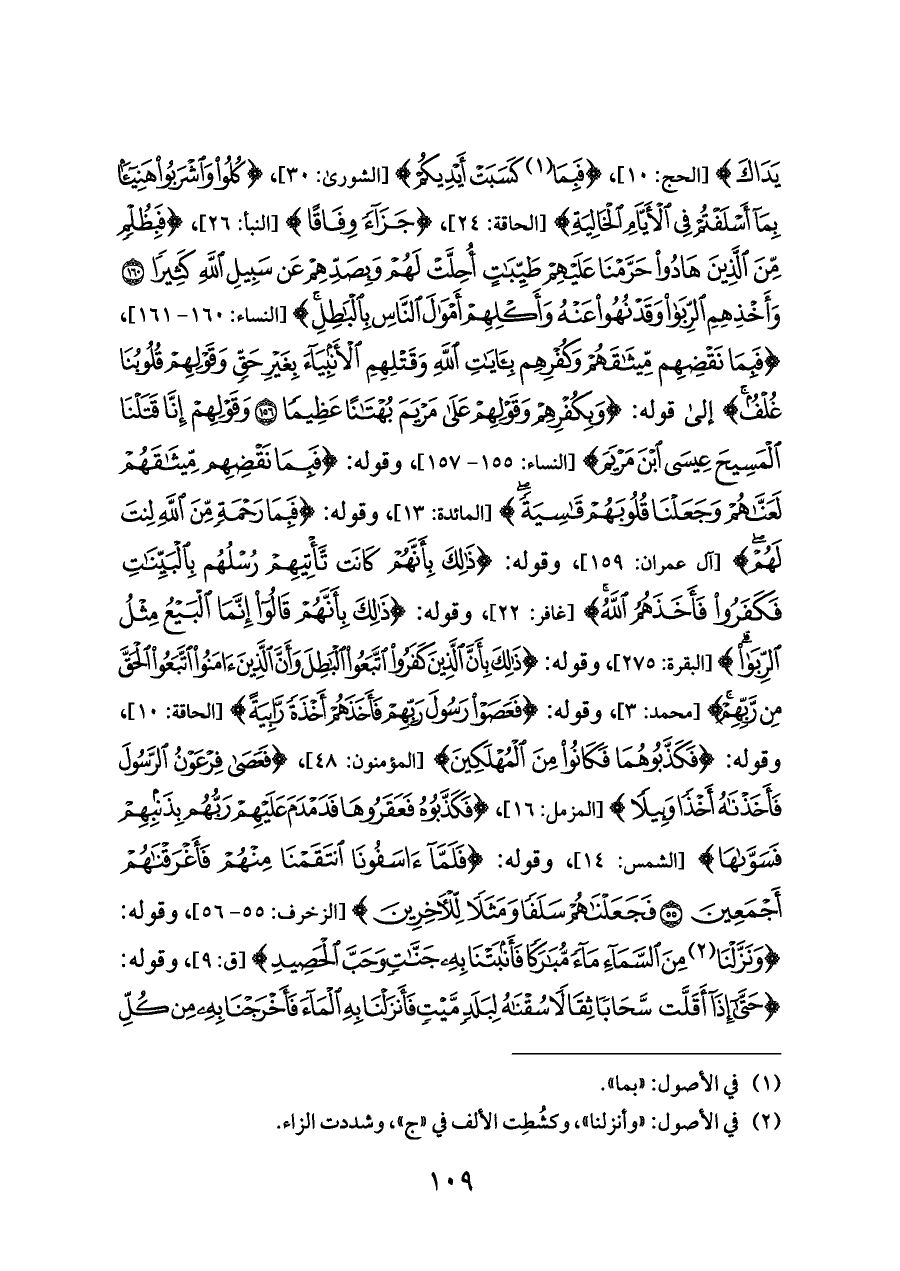 يَدَاكَ﴾ [الحج: ١٠]، ﴿فَبِمَا(١) كَسَبَتْ أَيْدِيكُمْ﴾ [الشورىٰ: ٣٠]، ﴿كُلُوا۟ وَٱشْرَبُوا۟ هَنِيٓـًٔۢا
بِمَآ أَسْلَفْتُمْ فِى ٱلْأَيَّامِ ٱلْخَالِيَةِ﴾ [الحاقة: ٢٤]، ﴿جَزَآءً وِفَاقًا﴾ [النبأ: ٢٦]، ﴿فَبِظُلْمٍ
مِّنَ ٱلَّذِينَ هَادُوا۟ حَرَّمْنَا عَلَيْهِمْ طَيِّبَٰتٍ أُحِلَّتْ لَهُمْ وَبِصَدِّهِمْ عَن سَبِيلِ ٱللَّهِ كَثِيرًا ۝١٦٠
وَأَخْذِهِمُ ٱلرِّبَوٰا۟ وَقَدْ نُهُوا۟ عَنْهُ وَأَكْلِهِمْ أَمْوَٰلَ ٱلنَّاسِ بِٱلْبَٰطِلِ ۚ﴾ [النساء: ١٦٠- ١٦١]،
﴿فَبِمَا نَقْضِهِم مِّيثَٰقَهُمْ وَكُفْرِهِم بِـَٔايَٰتِ ٱللَّهِ وَقَتْلِهِمُ ٱلْأَنۢبِيَآءَ بِغَيْرِ حَقٍّ وَقَوْلِهِمْ قُلُوبُنَا
غُلْفٌۢ ۚ﴾ إلىٰ قوله: ﴿وَبِكُفْرِهِمْ وَقَوْلِهِمْ عَلَىٰ مَرْيَمَ بُهْتَٰنًا عَظِيمًا ۝١٥٦ وَقَوْلِهِمْ إِنَّا قَتَلْنَا
ٱلْمَسِيحَ عِيسَى ٱبْنَ مَرْيَمَ﴾ [النساء: ١٥٥- ١٥٧]، وقوله: ﴿فَبِمَا نَقْضِهِم مِّيثَٰقَهُمْ
لَعَنَّٰهُمْ وَجَعَلْنَا قُلُوبَهُمْ قَٰسِيَةً ۖ﴾ [المائدة: ١٣]، وقوله: ﴿فَبِمَا رَحْمَةٍ مِّنَ ٱللَّهِ لِنتَ
لَهُمْ ۖ﴾ [آل عمران: ١٥٩]، وقوله: ﴿ذَٰلِكَ بِأَنَّهُمْ كَانَت تَّأْتِيهِمْ رُسُلُهُم بِٱلْبَيِّنَٰتِ
فَكَفَرُوا۟ فَأَخَذَهُمُ ٱللَّهُ ۚ﴾ [غافر: ٢٢]، وقوله: ﴿ذَٰلِكَ بِأَنَّهُمْ قَالُوٓا۟ إِنَّمَا ٱلْبَيْعُ مِثْلُ
ٱلرِّبَوٰا۟ ۗ﴾ [البقرة: ٢٧٥]، وقوله: ﴿ذَٰلِكَ بِأَنَّ ٱلَّذِينَ كَفَرُوا۟ ٱتَّبَعُوا۟ ٱلْبَٰطِلَ وَأَنَّ ٱلَّذِينَ ءَامَنُوا۟ ٱتَّبَعُوا۟ ٱلْحَقَّ
مِن رَّبِّهِمْ ۚ﴾ [محمد: ٣]، وقوله: ﴿فَعَصَوْا۟ رَسُولَ رَبِّهِمْ فَأَخَذَهُمْ أَخْذَةً رَّابِيَةً﴾ [الحاقة: ١٠]،
وقوله: ﴿فَكَذَّبُوهُمَا فَكَانُوا۟ مِنَ ٱلْمُهْلَكِينَ﴾ [المؤمنون: ٤٨]، ﴿فَعَصَىٰ فِرْعَوْنُ ٱلرَّسُولَ
فَأَخَذْنَٰهُ أَخْذًا وَبِيلًا﴾ [المزمل: ١٦]، ﴿فَكَذَّبُوهُ فَعَقَرُوهَا فَدَمْدَمَ عَلَيْهِمْ رَبُّهُم بِذَنۢبِهِمْ
فَسَوَّىٰهَا﴾ [الشمس: ١٤]، وقوله: ﴿فَلَمَّآ ءَاسَفُونَا ٱنتَقَمْنَا مِنْهُمْ فَأَغْرَقْنَٰهُمْ
أَجْمَعِينَ ۝٥٥ فَجَعَلْنَٰهُمْ سَلَفًا وَمَثَلًا لِّلْـَٔاخِرِينَ﴾ [الزخرف: ٥٥- ٥٦]، وقوله:
﴿وَنَزَّلْنَا(٢) مِنَ ٱلسَّمَآءِ مَآءً مُّبَٰرَكًا فَأَنۢبَتْنَا بِهِۦ جَنَّٰتٍ وَحَبَّ ٱلْحَصِيدِ﴾ [ق: ٩]، وقوله:
﴿حَتَّىٰٓ إِذَآ أَقَلَّتْ سَحَابًا ثِقَالًا سُقْنَٰهُ لِبَلَدٍ مَّيِّتٍ فَأَنزَلْنَا بِهِ ٱلْمَآءَ فَأَخْرَجْنَا بِهِۦ مِن كُلِّ
(١) في الأصول: «بما».
(٢) في الأصول: «وأنزلنا»، وكُشُطِت الألف في «ج»، وشددت الزاء.
١٠٩